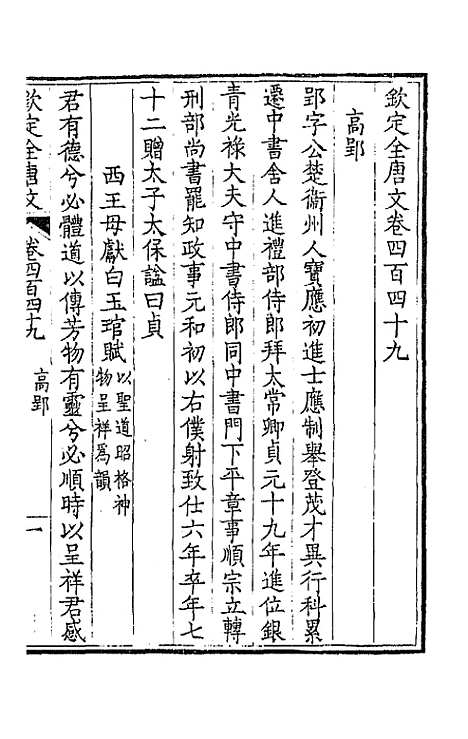 欽定全唐文卷四百四十九
高郢
郢字公楚衞州人寶應初進士應制舉登茂才異行科累
遷中書舍人進禮部侍郎拜太常卿貞元十九年進位銀
青光祿大夫守中書侍郎同中書門下平章事順宗立轉
刑部尚書罷知政事元和初以右僕射致仕六年卒年七
十二贈太子太保諡曰貞
西王母獻白玉琯賦以聖道昭格神
物呈祥爲韻
君有德兮必體道以傳芳物有靈兮必順時以呈祥君感
欽定全唐文
卷四百四十九
高郢
一